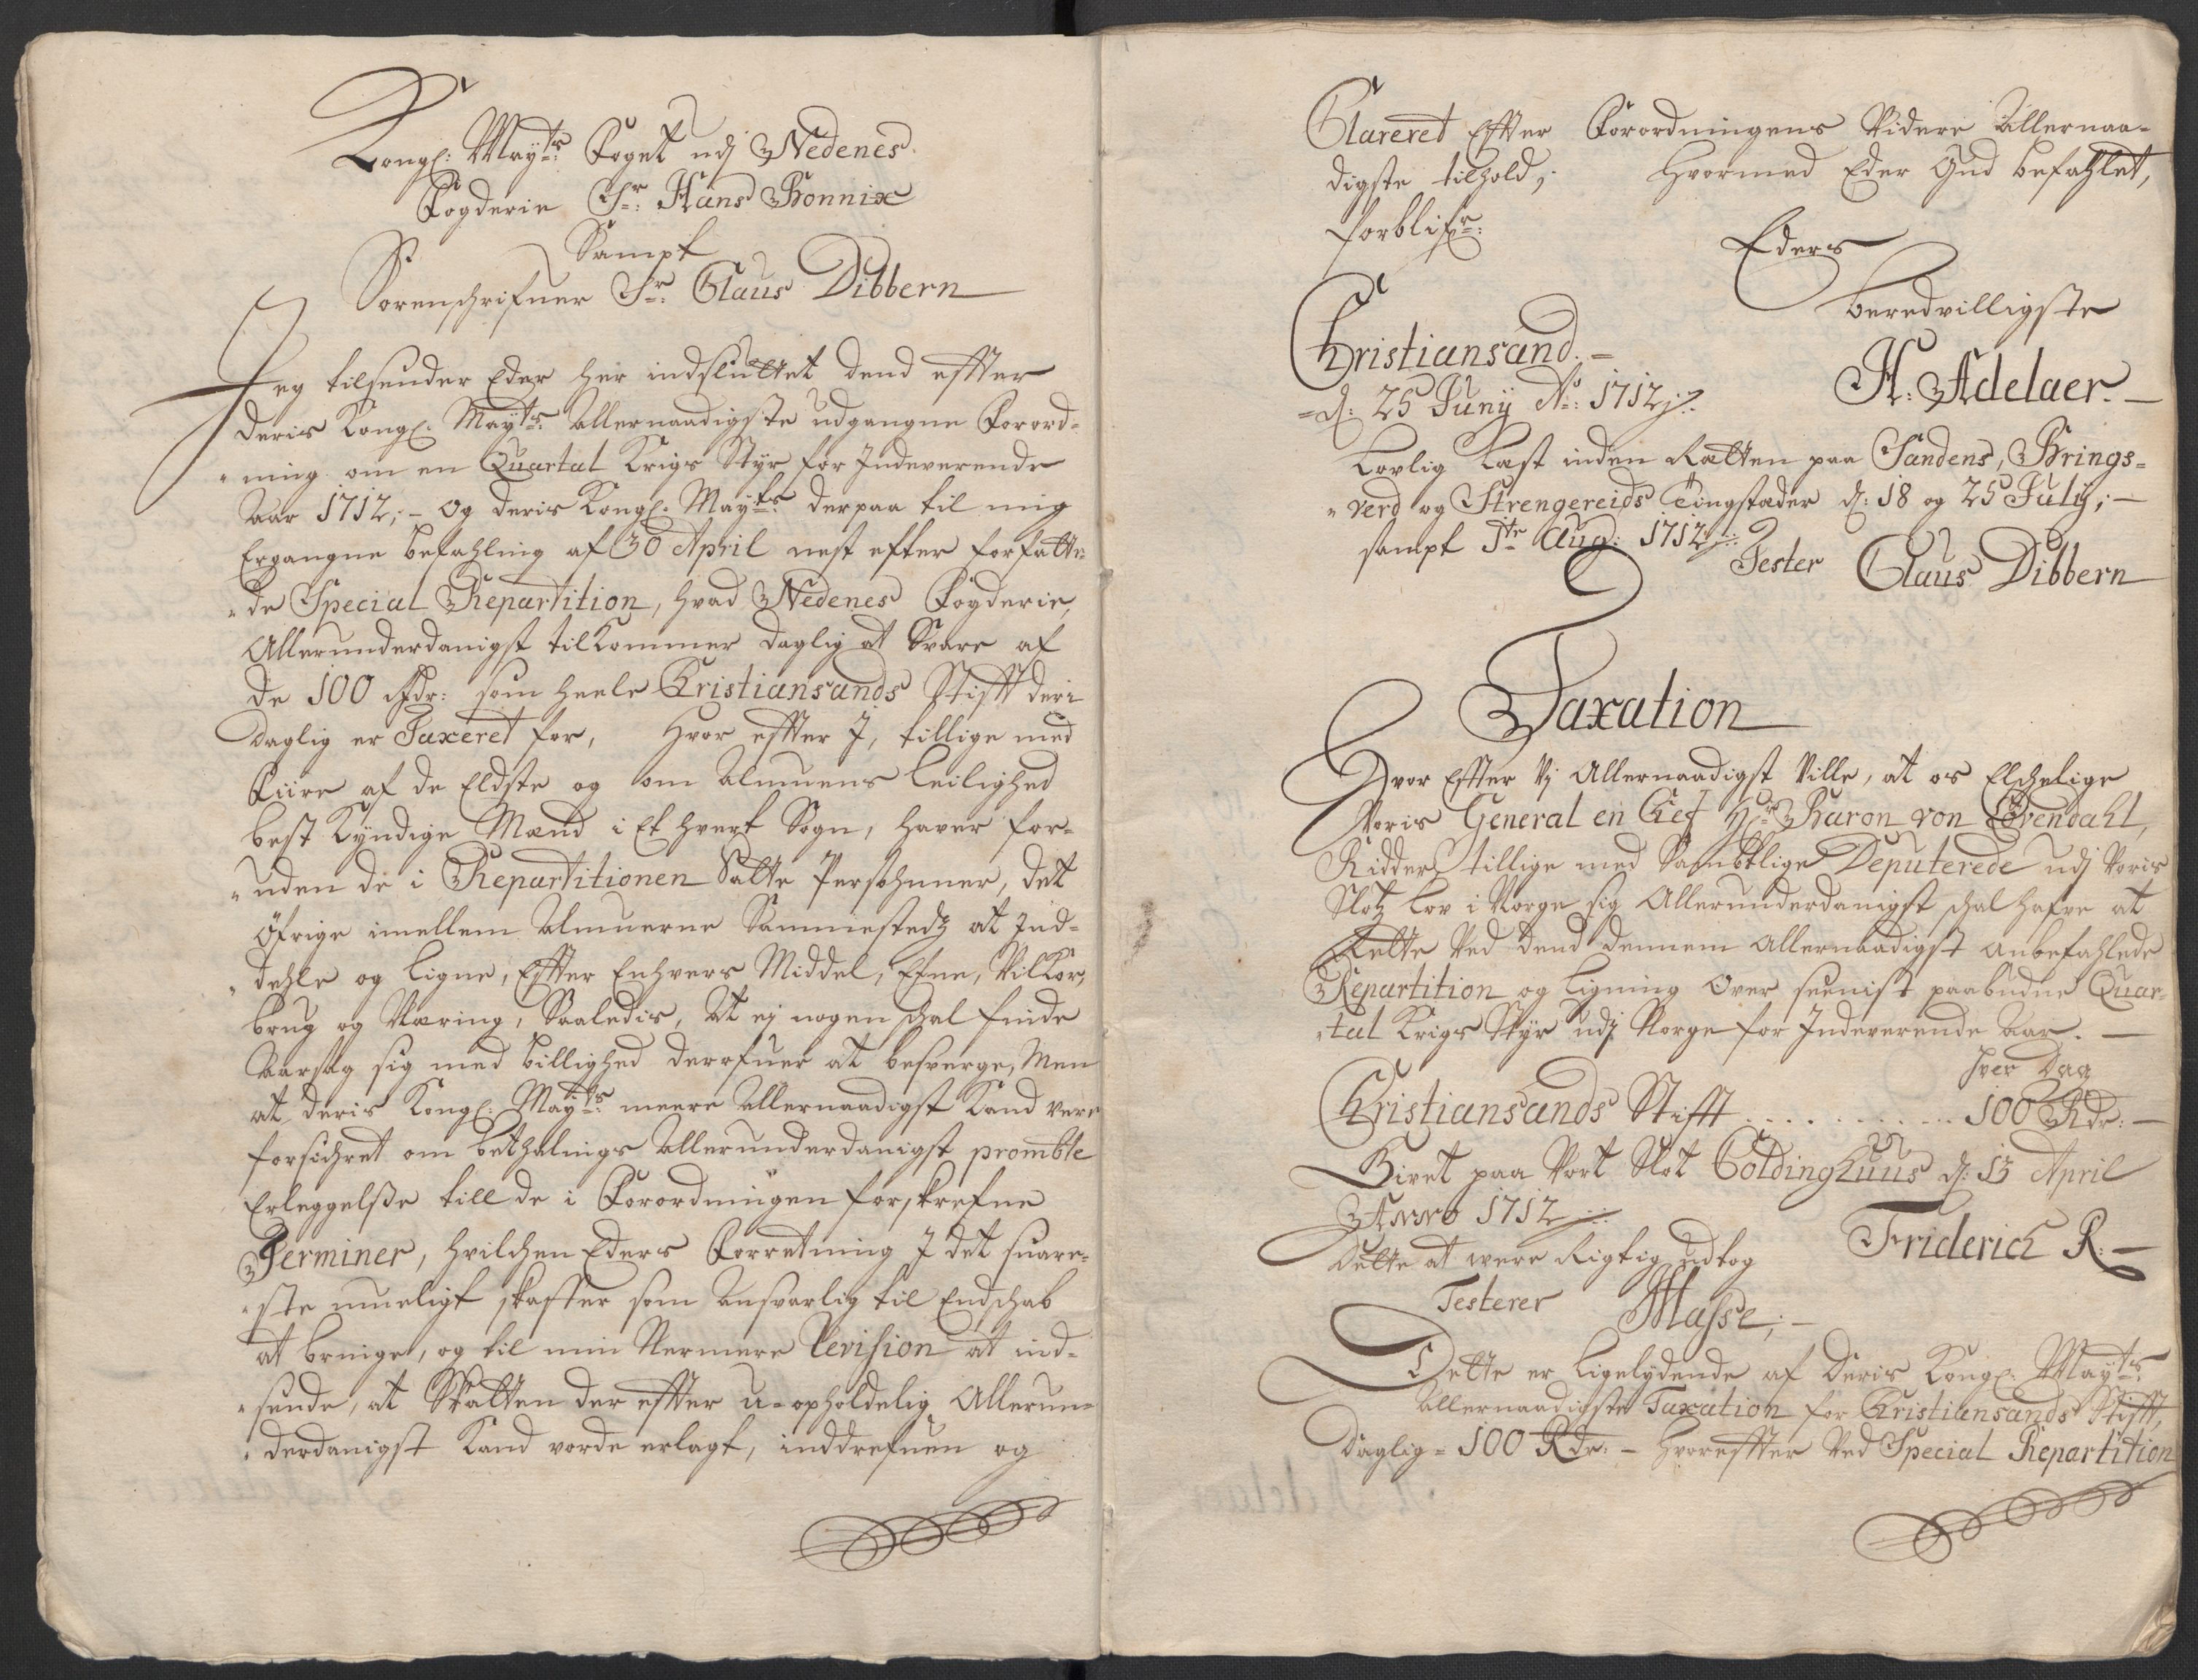 Kongl: Mayts: Foget udj Nedenes
Fogderie Sr: Hans Bonnix
Sampt
Sorenschrifuer Sr: Claus Dibbern
Jeg tilsender Eder her indsluttet dend effter
deris Kongl: Mayts: Allernaadigste udgangne Forord-
ning om en Quartal Krigs Styr for Indeverende
Aar 1712; - Og deris Kongl: Mayts: derpaa til mig
Ergangne befahling af 30 April nest efter forfatte-
de Special Repartition, hvad Nedenes Fogderie,
Allerunderdanigst tilkommer daglig at Svare af
de 100 Rdr: som heele Christiansands Stifft deri
daglig er Taxeret for, Hvor effter I, tillige med
Fiire af de Eldste og om Almuens leilighed
best Kyndige Mænd i Et hvert Sogn, haver for-
uden de i Repartitionen Satte Persohnner, det
Øfrige imellem Almuerne Sammestedz at Ind-
dehle og Ligne, Effter Enhvers Middel, Efne, Vilkor,
brug og Næring, Saaledis, At ej nogen schal finde
Aarsag sig med billighed derofuer at besverge, Men
at deris Kongl: Mayts: meere Allernaadigst Kand vere
forsichret om bethalnings Allerunderdanigst promble
Erleggelsse till de i Forordningen forskrefne
Terminer, hvilchen Eders Forretning I det snare-
ste mueligt skaffer som Ansvarlig til Endschab
at bringe, og til min Nermere Revision at ind-
sende, at Skatten der effter u-opholdelig Allerun-
derdanigst Kand vorde erlagt, inddrefuen og
Clareret Effter Forordningens Videre Allernaa-
digste tilhold; Hvormed Eder Gud befahlet,
forblifr:
Eders
beredvilligste
Christiansand. -
d: 25 Junij Ao: 1712
H: Adelaer. -
Lovlig Læst inden Rætten paa Sandens, Brings-
verd og Strengereids Tingstæder d: 18 og 25 Julij; -
sampt 1te Aug: 1712
Tester Claus Dibbern
Taxation
Hvor Effter Vj Allernaadigst Ville, at os Elschelige
Voris General en Chef Hr Baron von Løvendahl,
Ridder, tillige med Samtlige Deputerede udj Voris
Slotz Lov i Norge sig Allerunderdanigst schal hafve at
Rette Ved dend dennem Allernaadigst Anbefahlede
Repartition og Ligning Over seenist paabudne Quar-
tal Krigs Styr udj Norge for Indeverende Aar. -
hver Dag
Christiansands Stifft . . . . . . . . 100 Rdr: -
Givet paa Vort Slot Coldinghuus d: 13 April
Anno 1712
Friderich R: -
Dette at were Rigtig udtog
Testerer Masse; -
Dette er ligelydende af Deris Kongl: Mayts:
Allernaadigste Taxation for Christiansands Stifft,
daglig - 100 Rdr: - Hvoreffter Ved Special Repartition